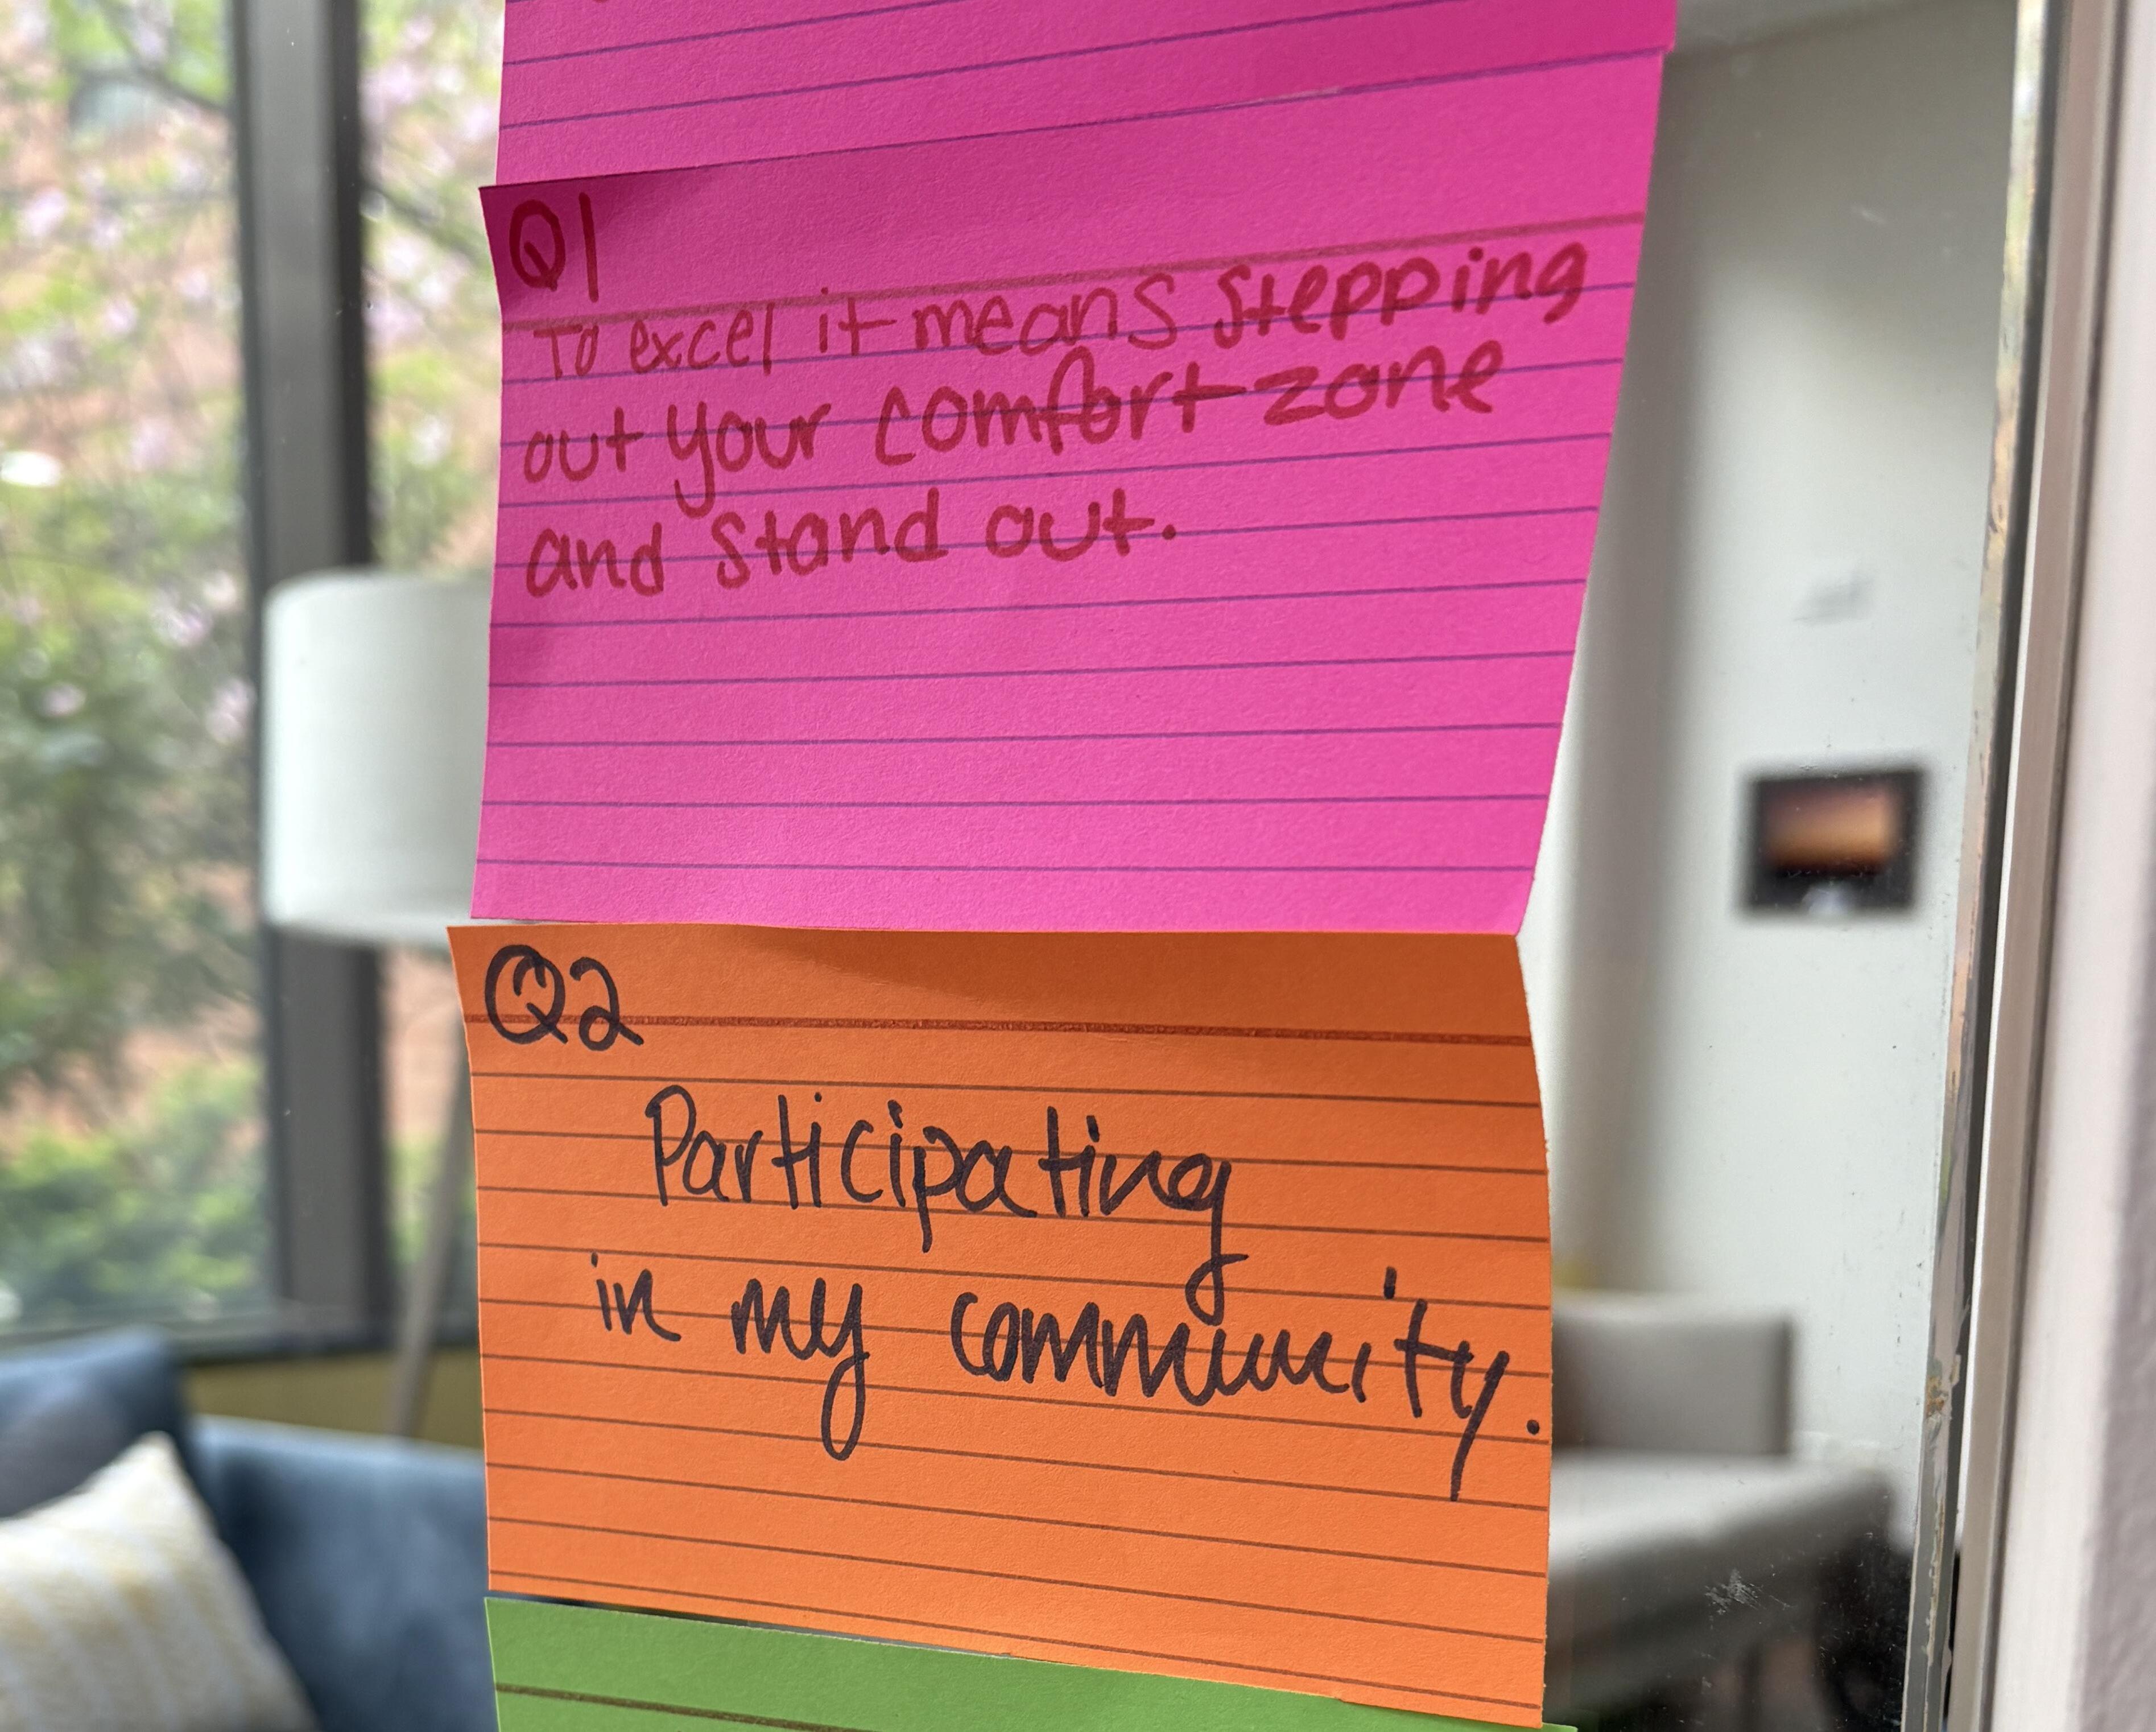 Q1
To excel it means stepping
out your comfort zone
and stand out.
Q2
Participating
in my community.